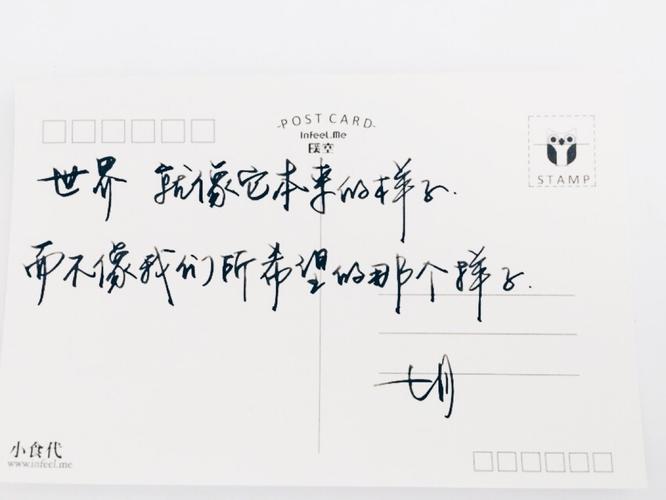 POST CARD
Infeel.Me
STAMP
世界 就像它本来的样子.
而不像我们所希望的那个样子.
七月
小食代
www.infeel.me